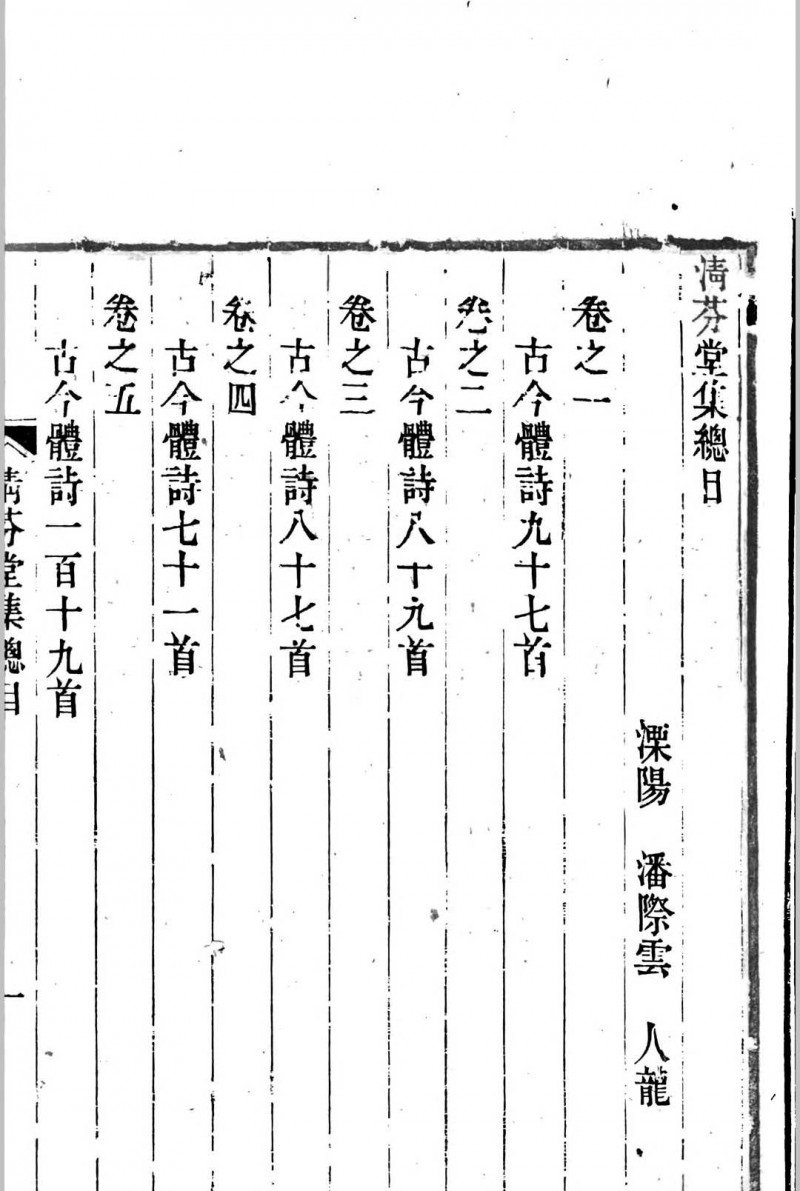 清芬堂集總目
溧陽　潘際雲　人龍
卷之一
古今體詩九十七首
卷之二
古今體詩八十九首
卷之三
古今體詩八十七首
卷之四
古今體詩七十一首
卷之五
古今體詩一百十九首
清芬堂集總目
一